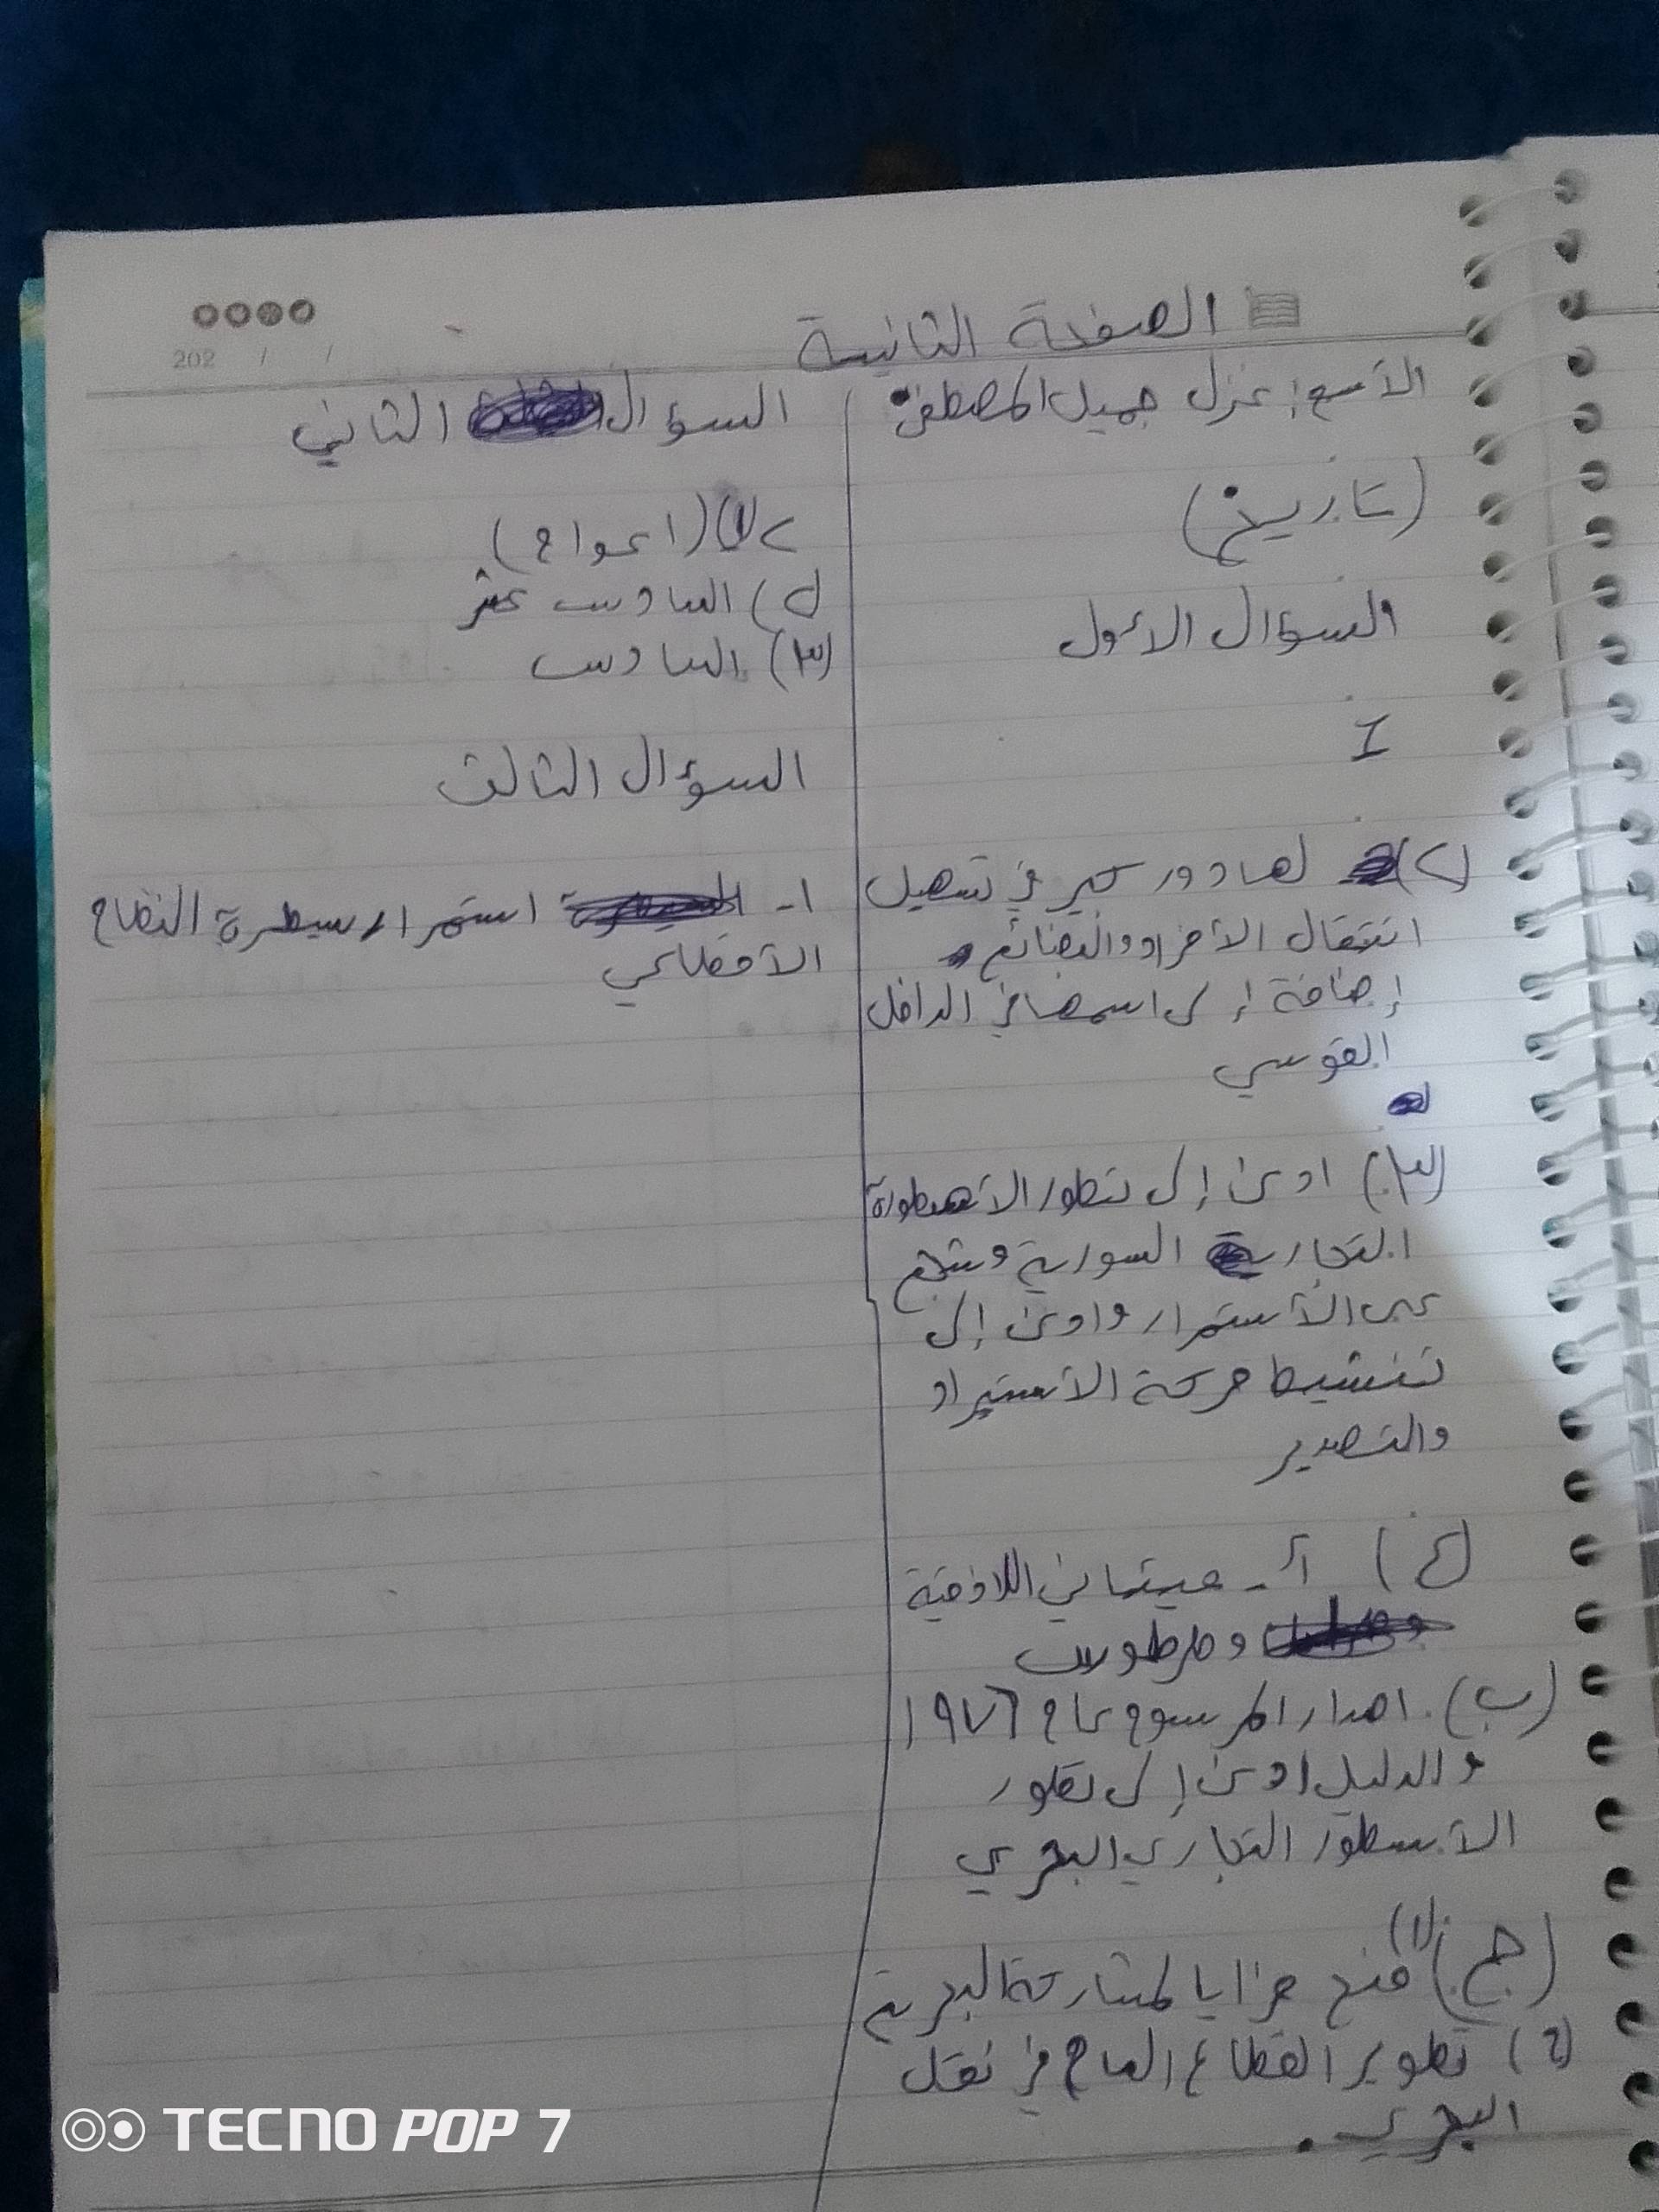 الصفحة الثانية
202 / /
الأسم: غزل جميل المصطفى
(تاريخ)
السؤال الأول
I
(٢) لها دور كبير في تسهيل
انتقال الأفراد والبضائع
إضافة إلى اسمها في الداخل
القوسي
(٣) ادى إلى تطور الأسطورة
التجارية السورية وشجع
على الأستمرار وادى إلى
تنشيط حركة الأستيراد
والتصدير
(٤) أ- مينائي اللاذقية
وطرطوس
(ب) اصدار المرسوم عام ١٩٧٦
والدليل ادى إلى تطور
الأسطور التجاري البحري
(ج) (١) منح مزايا لمشاركة البحرية
(٢) تطوير القطاع العام في نقل
البحري.
السؤال الثاني
١) (اعوام)
٢) السادس عشر
(٣) السادس
السؤال الثالث
١- استمرار سيطرة النظام
الأقطاعي
TECNO POP 7